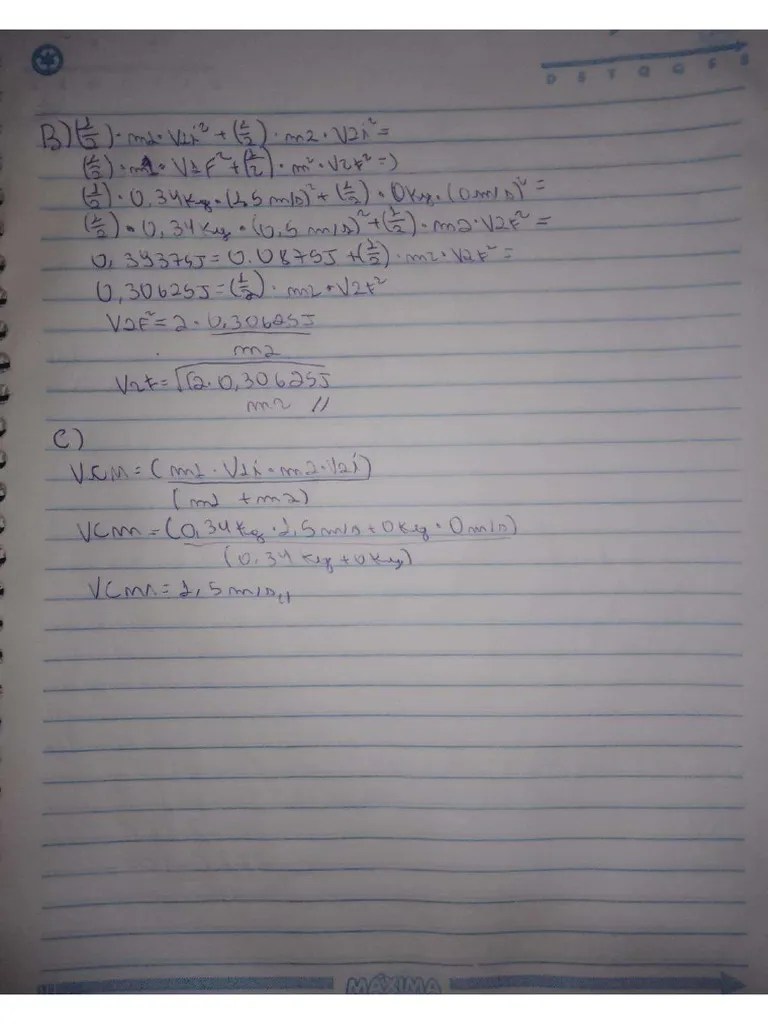 D S T Q Q S S
B) (1/2) · m1 · V1i² + (1/2) · m2 · V2i² =
(1/2) · m1 · V1F² + (1/2) · m² · V2F² =)
(1/2) · 0,34Kg · (1,5 m/s)² + (1/2) · 0Kg · (0 m/s)² =
(1/2) · 0,34Kg · (0,5 m/s)² + (1/2) · m2 · V2F² =
0,39375J = 0.0875J + (1/2) · m2 · V2F² =
0,30625J = (1/2) · m2 · V2F²
V2F² = 2 · 0,30625J
m2
V2F = √(2 · 0,30625J
m2 //
C)
VCM = (m1 · V1i · m2 · V2i)
(m1 + m2)
VCM = (0,34Kg · 1,5m/s + 0Kg · 0m/s)
(0,34Kg + 0Kg)
VCM = 1,5m/s //
MÁXIMA